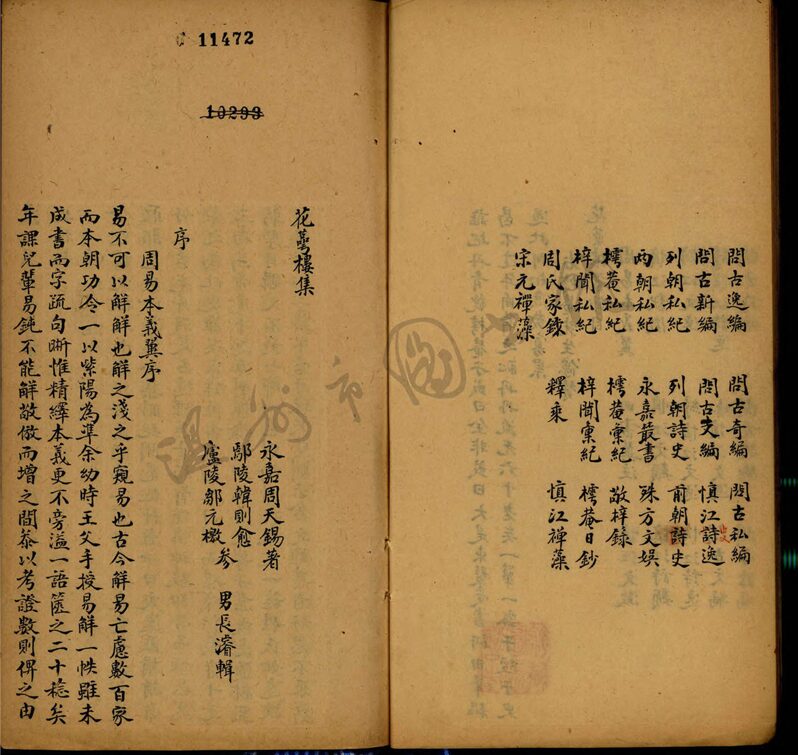 閱古逸編 閱古奇編 閱古私編
閱古新編 閱古文編 慎江詩逸
列朝私紀 列朝詩史 前朝詩史
兩朝私紀 永嘉叢書 殊方文娛
樗菴私紀 樗菴彙紀 敬梓錄
梓聞私紀 梓聞彙紀 樗菴日鈔
周氏家錄 釋乘 慎江禪藻
宋元禪藻
11472
10293
花萼樓集
永嘉周天錫著
鄢陵韓則愈
廬陵鄒元檄 參 男長濬輯
序
周易本義翼序
易不可以解解也解之淺之乎窺易也古今解易亡慮數百家
而本朝功令一以紫陽為準余幼時王父手授易解一帙雖未
成書而字疏句晰惟精繹本義更不旁溢一語篋之二十稔矣
年課兒輩易鈍不能解敬倣而增之間叅以考證數則俾之由
温州市圖